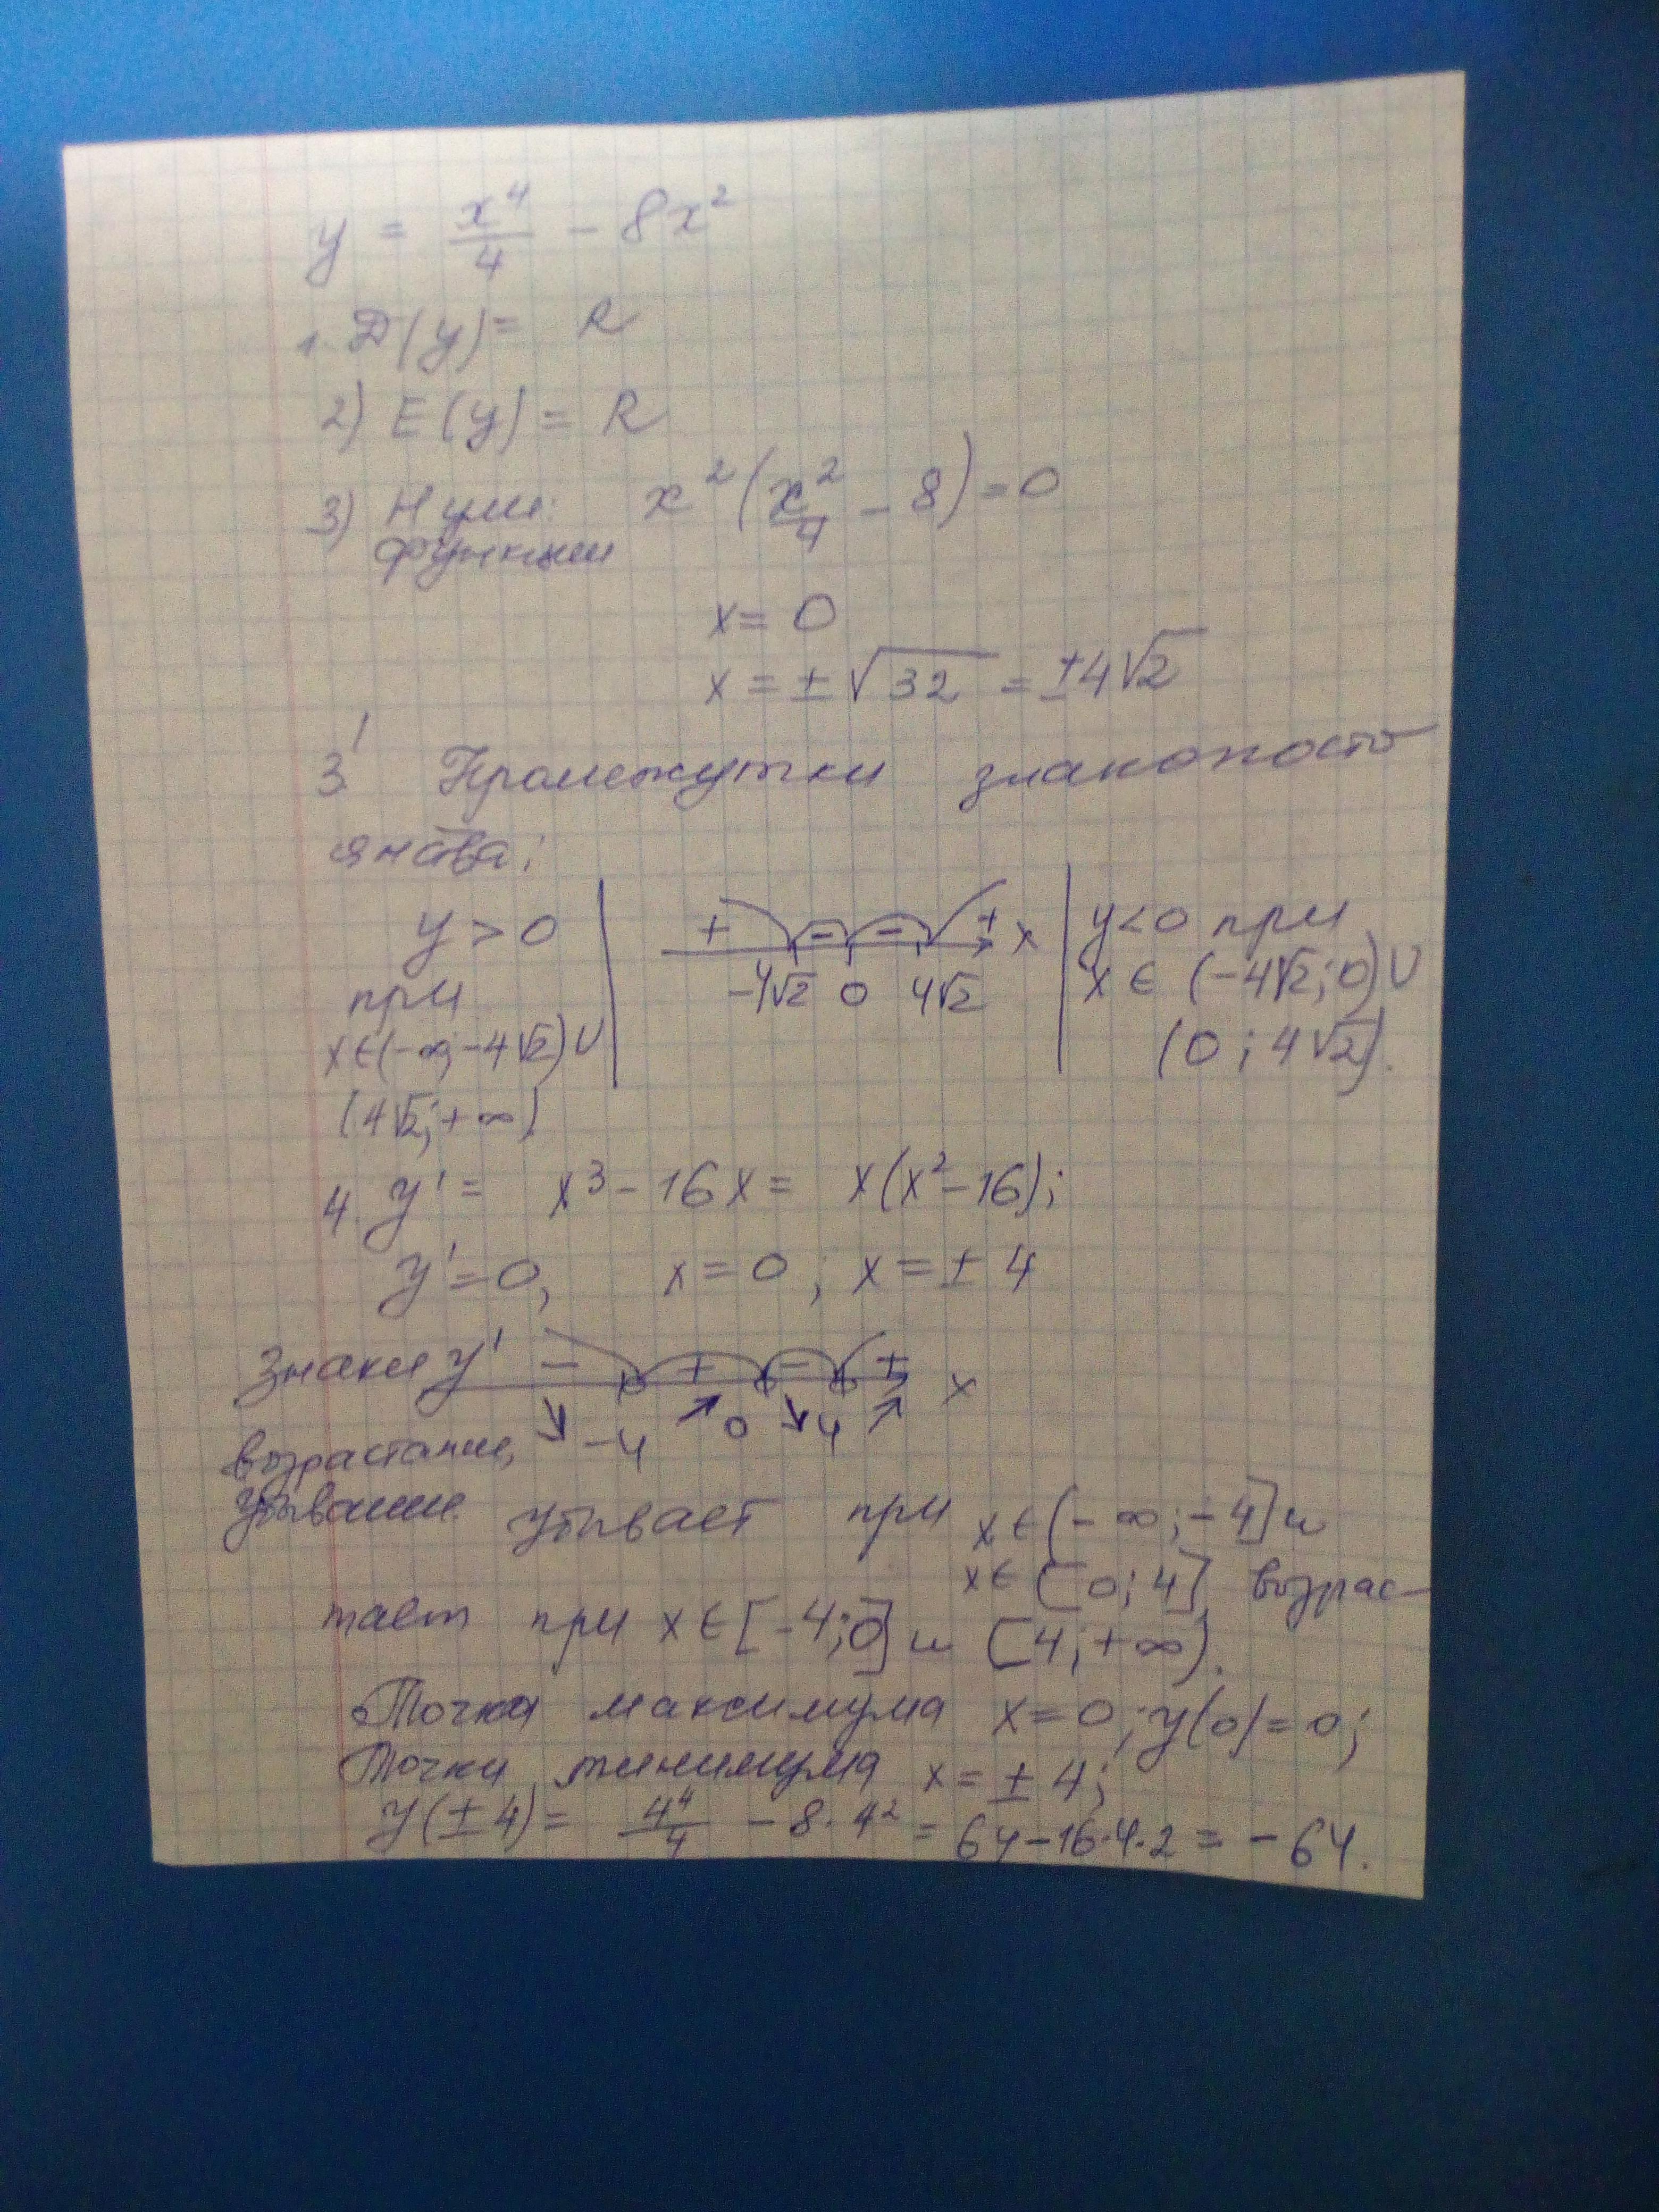 y = x⁴/4 - 8x²
1. D(y) = R
2) E(y) = R
3) Нули: x²(x²/4 - 8) = 0
функции
x = 0
x = ±√32 = ±4√2
3' Промежутки знакопосто
янства:
y > 0 | + - - + x | y < 0 при
при | -4√2 0 4√2 | x ∈ (-4√2; 0) ∪
x ∈ (-∞; -4√2) ∪ | (0; 4√2).
(4√2; +∞)
4. y' = x³ - 16x = x(x² - 16);
y' = 0, x = 0; x = ± 4
Знаки y' - + - + x
возрастание, ↘ -4 ↗ 0 ↘ 4 ↗
убывание убывает при x ∈ (-∞; -4] и
x ∈ [0; 4], возрас-
тает при x ∈ [-4; 0] и [4; +∞).
Точка максимума x = 0; y(0) = 0;
Точки минимума x = ± 4;
y(± 4) = 4⁴/4 - 8 · 4² = 64 - 16·4·2 = -64.